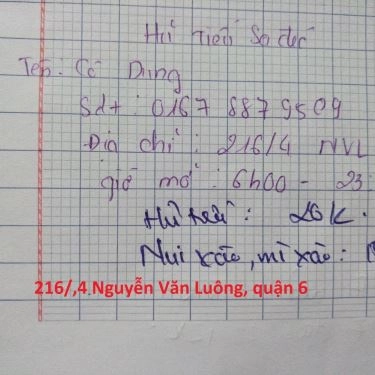 Hủ Tiếu Sa đéc
Tên: Cô Dung
Sdt: 0167 887 9509
Địa chỉ: 216/4 NVL
giờ mở: 6h00 - 23
Hủ tiếu: 20K.
Nui xào, mì xào:
216/,4 Nguyễn Văn Luông, quận 6